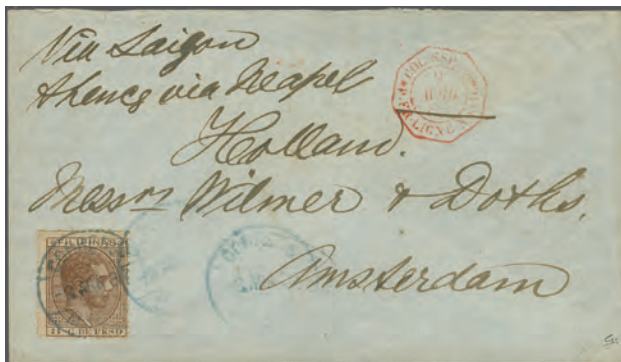 Via Saigon
thence via Neapel
Holland.
Messrs Wilmer & Doths.
Amsterdam
FILIPINAS
DE PESO
LIGNE